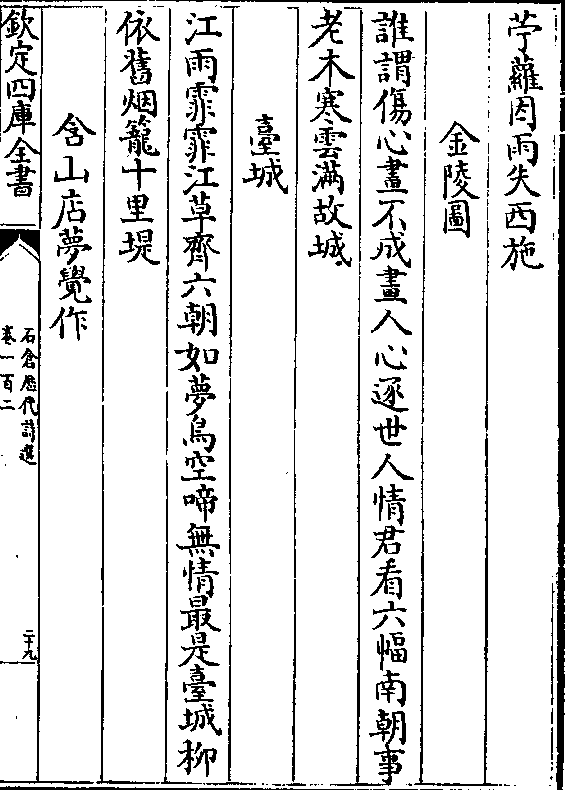 苧蘿因雨失西施
金陵圖
誰謂傷心畫不成畫人心逐世人情君看六幅南朝事
老木寒雲滿故城
臺城
江雨霏霏江草齊六朝如夢鳥空啼無情最是臺城柳
依舊烟籠十里堤
含山店夢覺作
欽定四庫全書
石倉歷代詩選
卷一百二
二十九